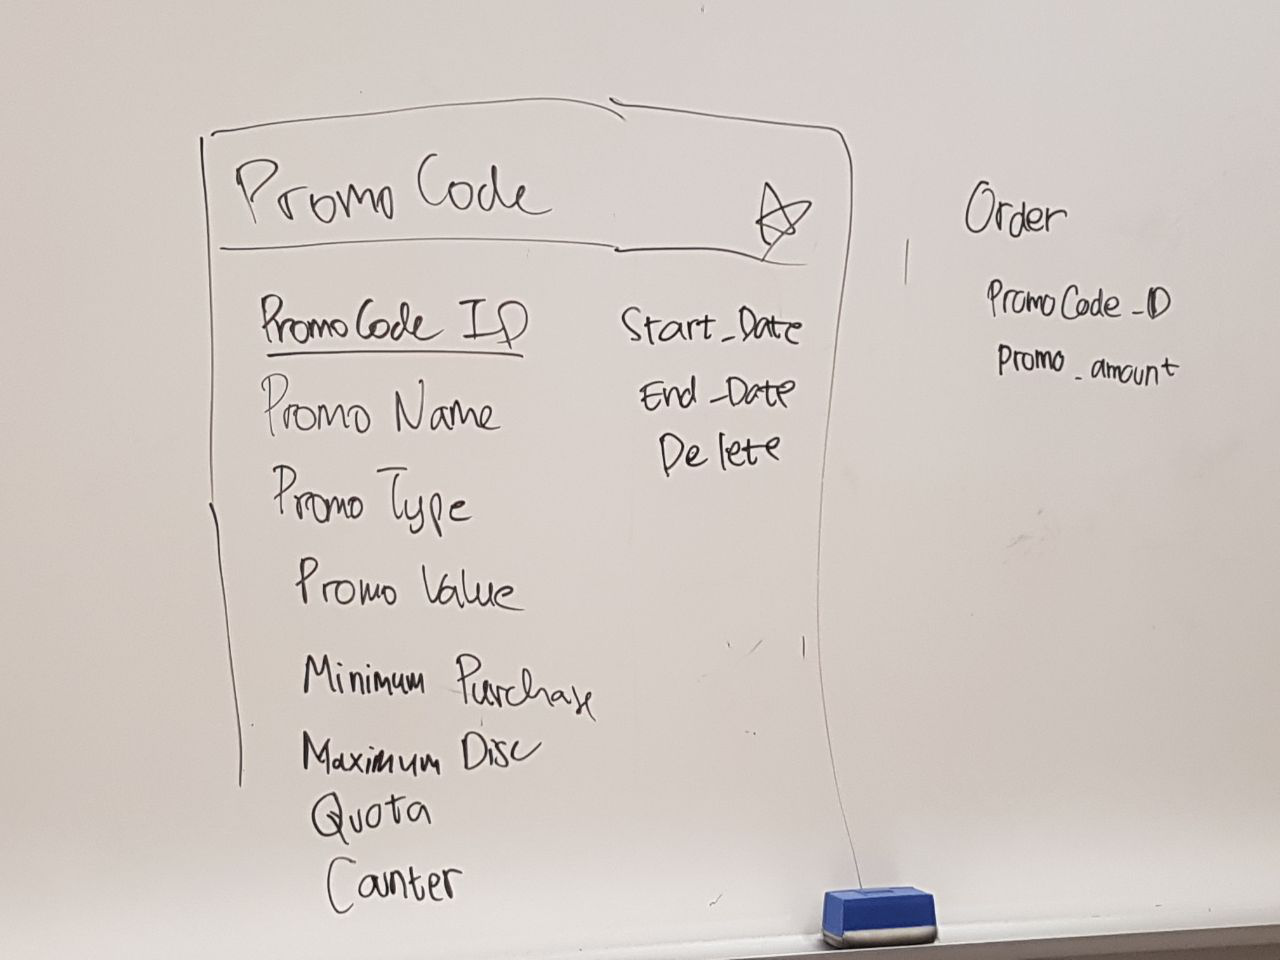 Promo Code
PromoCode ID
Promo Name
Promo Type
Promo Value
Minimum Purchase
Maximum Disc
Quota
Counter
Start_Date
End_Date
Delete
Order
PromoCode_ID
Promo_amount